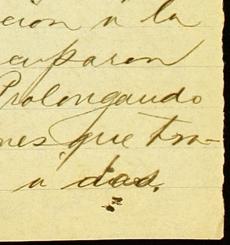 cion á la
cuparon
Prolongando
nes que tra-
a das.